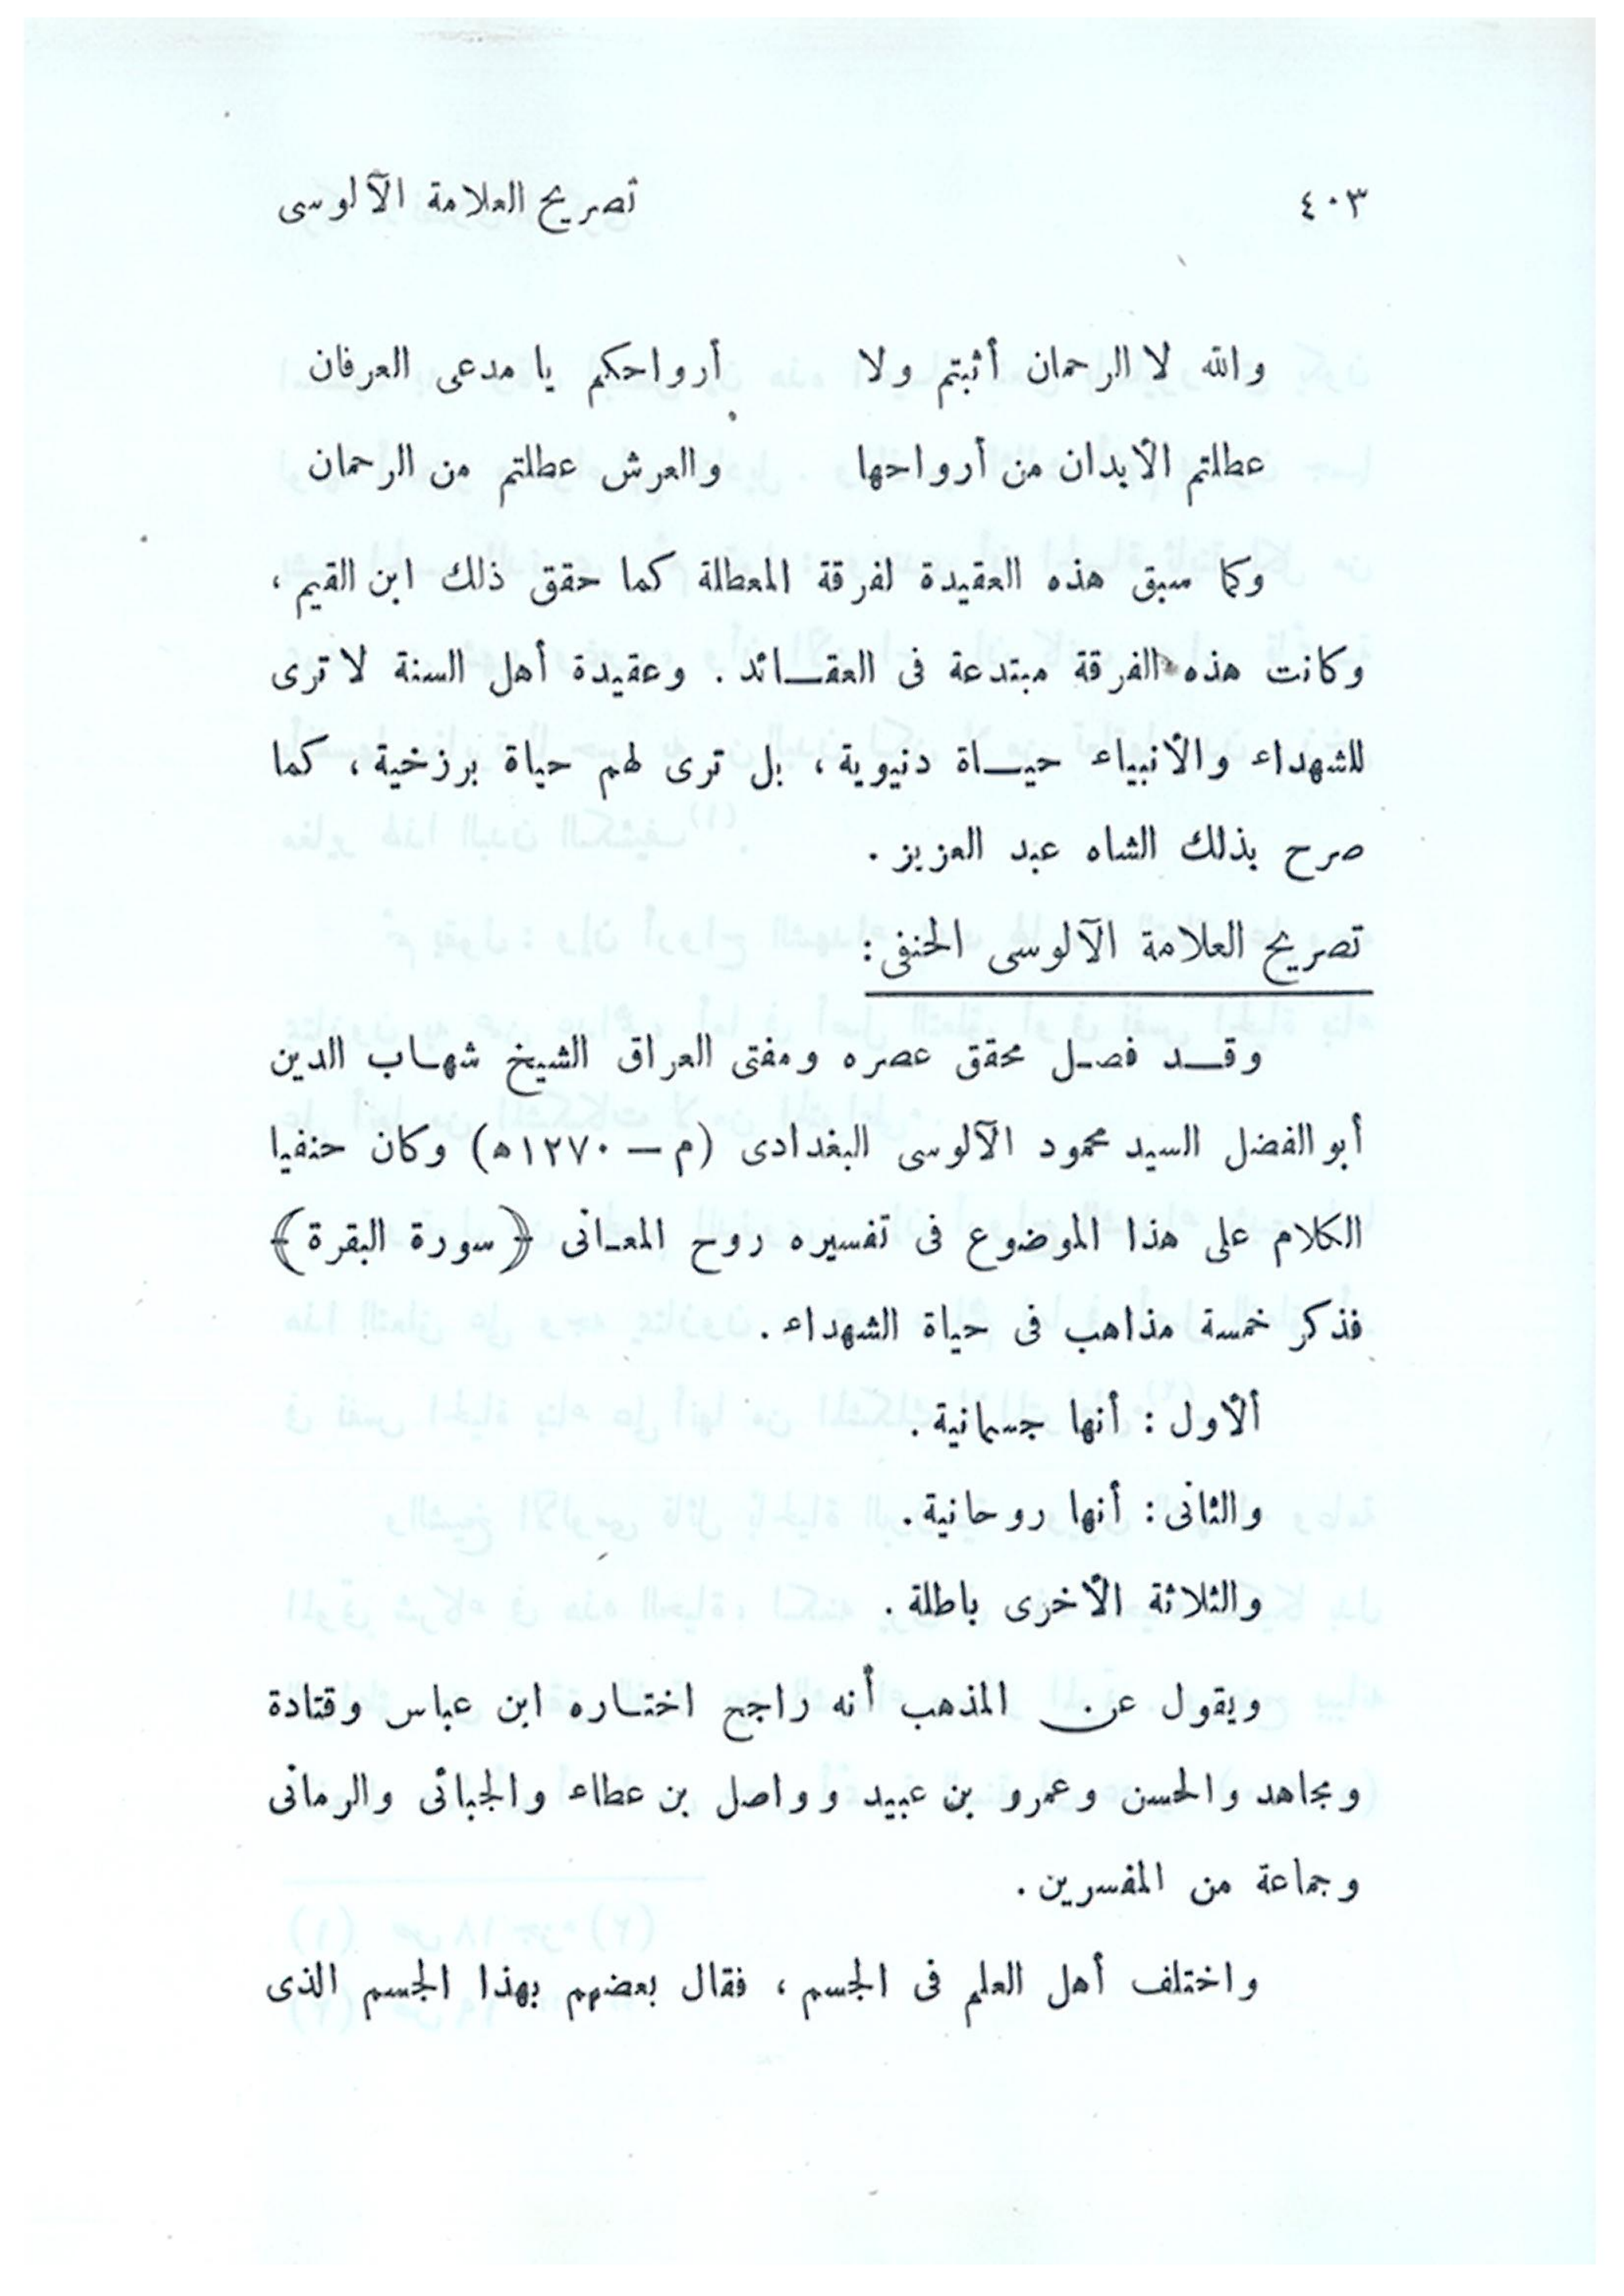 ٤٠٣ تصريح العلامة الآلوسى
والله لا الرحمان أثبتم ولا أرواحكم يا مدعى العرفان
عطلتم الأبدان من أرواحها والعرش عطلتم من الرحمان
وكما سبق هذه العقيدة لفرقة المعطلة كما حقق ذلك ابن القيم ،
وكانت هذه الفرقة مبتدعة فى العقـــائد . وعقيدة أهل السنة لا ترى
للشهداء والأنبياء حيـــاة دنيوية ، بل ترى لهم حياة برزخية ، كما
صرح بذلك الشاه عبد العزيز .
تصريح العلامة الآلوسى الحنفى :
وقـــد فصـل محقق عصره ومفتى العراق الشيخ شهـاب الدين
أبو الفضل السيد محمود الآلوسى البغدادى (م – ١٢٧٠ ه) وكان حنفيا
الكلام على هذا الموضوع فى تفسيره روح المعـانى ﴿ سورة البقرة ﴾
فذكر خمسة مذاهب فى حياة الشهداء .
ألأول : أنها جسمانية .
والثانى : أنها روحانية .
والثلاثة الأخرى باطلة .
ويقول عن المذهب أنه راجح اختـاره ابن عباس وقتادة
ومجاهد والحسن وعمرو بن عبيد وواصل بن عطاء والجبائى والرمانى
وجماعة من المفسرين .
واختلف أهل العلم فى الجسم ، فقال بعضهم بهذا الجسم الذى